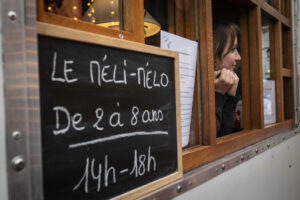 Le Méli-Mélo
De 2 à 8 ans
14h-18h